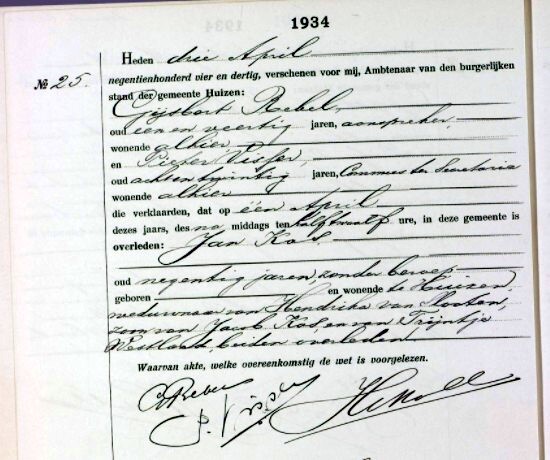 1934
Heden drie April
No 25.
negentienhonderd vier en dertig, verschenen voor mij, Ambtenaar van den burgerlijken
stand der gemeente Huizen:
Gijsbert Rebel,
oud een en veertig jaren, aanspreker,
wonende alhier
en Pieter Visser,
oud acht en twintig jaren, Commies ter Secretarie
wonende alhier
die verklaarden, dat op één April
dezes jaars, des na middags ten half twaalf ure, in deze gemeente is
overleden: Jan Kos
oud negentig jaren, zonder beroep
geboren en wonende te Huizen,
weduwnaar van Hendrika van Slooten,
zoon van Jacob Kos, en van Trijntje
Westland, beiden overleden
Waarvan akte, welke overeenkomstig de wet is voorgelezen.
G Rebel
P. Visser